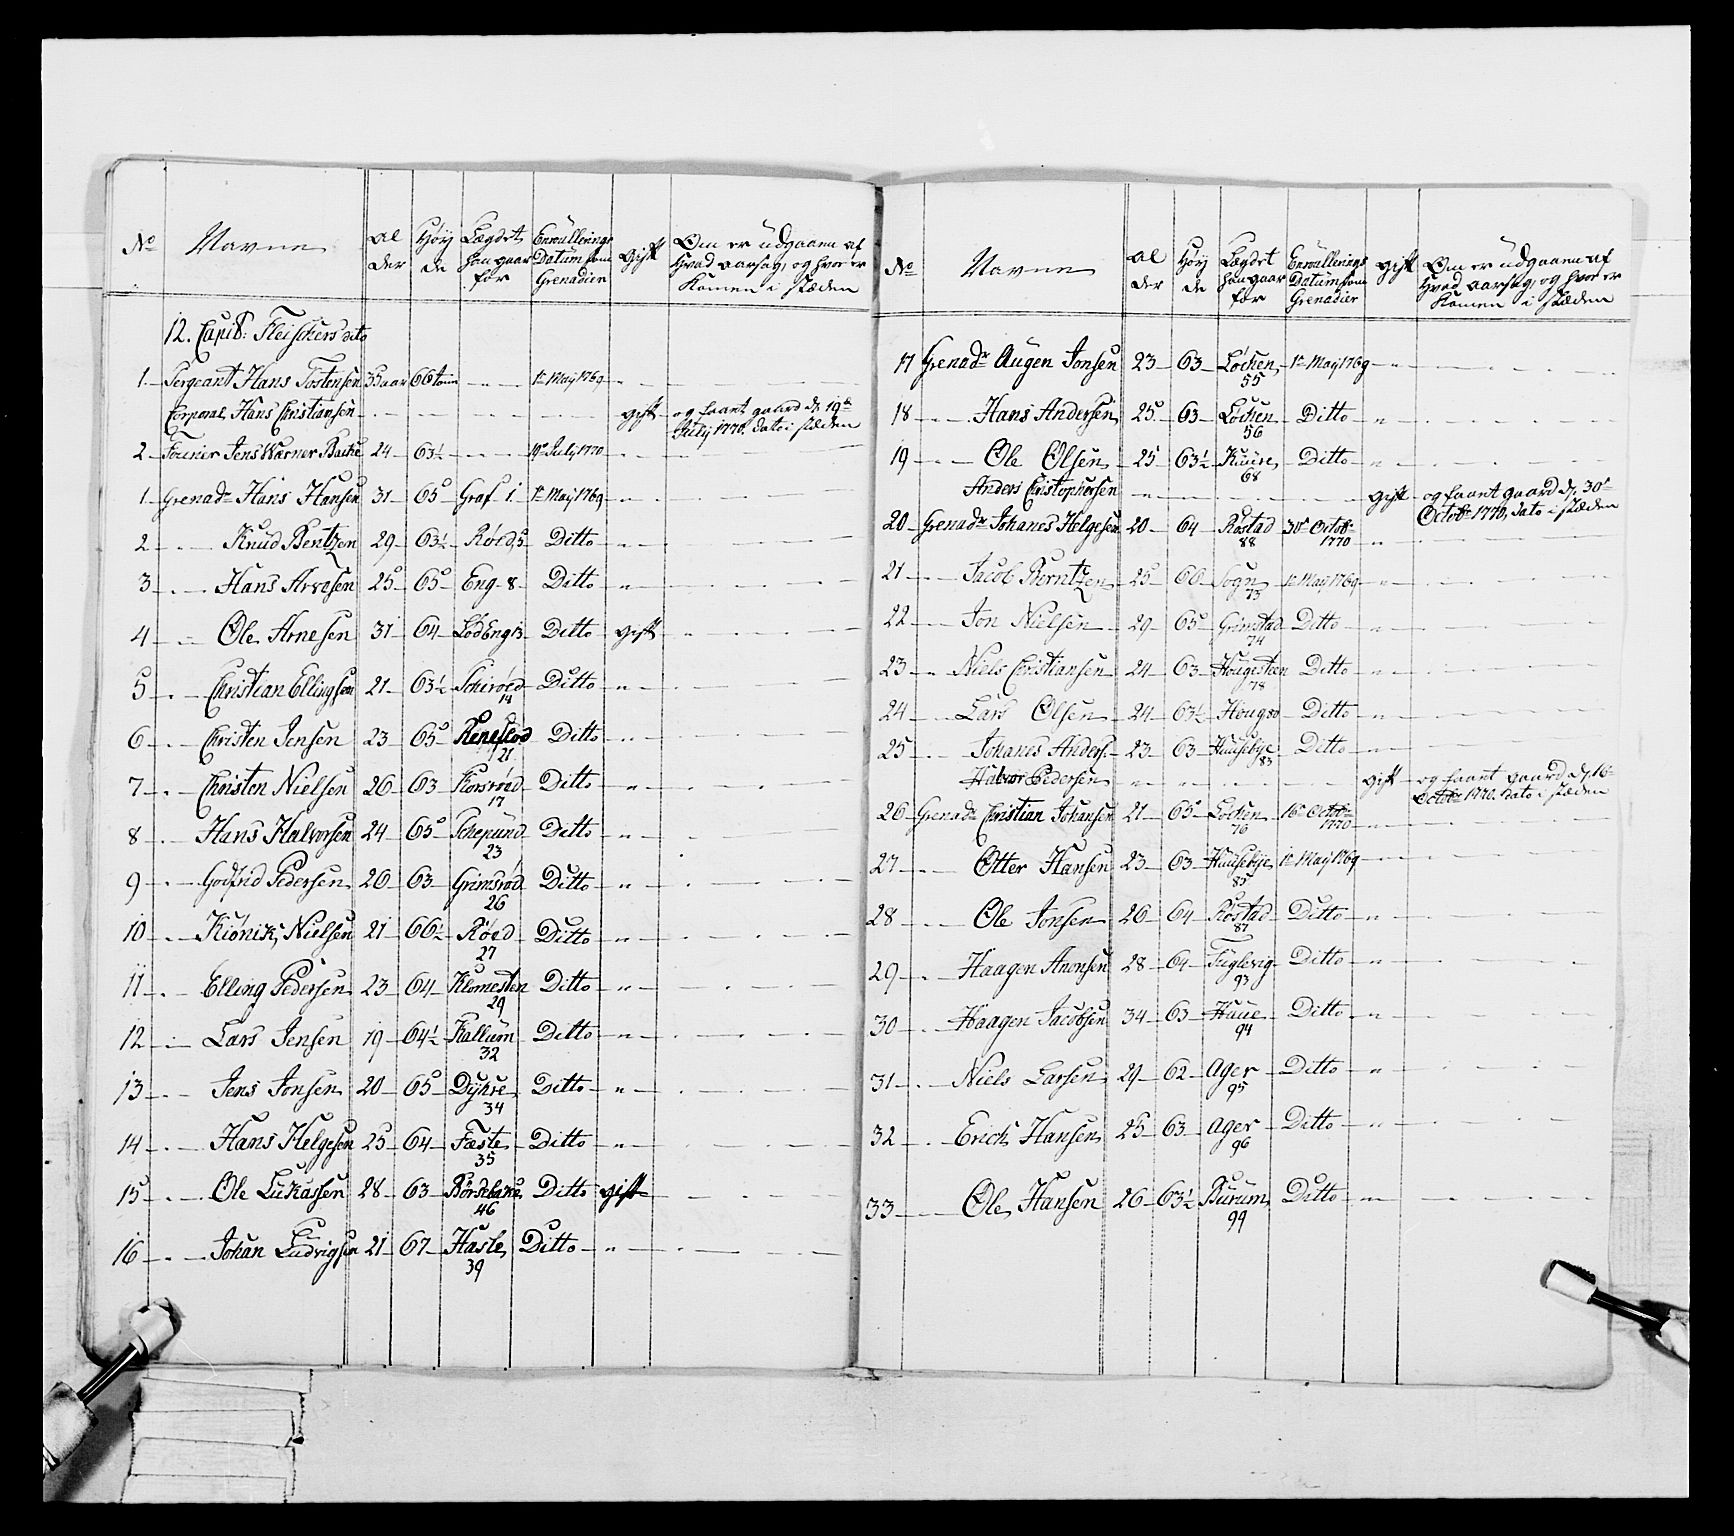 No Navne Alder Høyde Lægdet han gaar for Enroullerings Datum som Grenadier gift Om er udgaaen af Hvad aarsag, og hvor er Komen i stæden
12. Capit: Fleischers dito
1 Sergeant Hans Tostensen 35 aar 66 tom 1te May 1769
Corporal Hans Christiansen gift og faaet gaard d. 19de July 1770. dato i stæden
2 Fourier Jens Warner Backe 24 63½ 19de July 1770
1 Grenadr Hans Hansen 31 65 Graf 1 1te May 1769
2 Knud Bentzen 29 63½ Røed 5 Ditto
3 Hans Arvesen 25 65 Eng 8 Ditto
4 Ole Arnesen 31 64 Lød Eng 13 Ditto gift
5 Christian Ellingsen 21 63½ Schirød 14 Ditto
6 Christen Jensen 23 65 21 Ditto
7 Christen Nielsen 26 63 Korsrød 17 Ditto
8 Hans Halvorsen 24 65 Schepund 23 Ditto
9 Godfrid Pedersen 20 63 Grimsrød 26 Ditto
10 Kiønik Nielsen 21 66½ Røed 27 Ditto
11 Elling Pedersen 23 64 Klomesten 29 Ditto
12 Lars Jensen 19 64½ Kallum 32 Ditto
13 Jens Jonsen 20 65 Dyhre 34 Ditto
14 Hans Helgesen 25 64 Fæste 35 Ditto
15 Ole Lukassen 28 63 Børsebakke 46 Ditto gift
16 Johan Ludvigsen 21 67 Hasle 39 Ditto
No Navne Alder Høyde Lægdet han gaar for Enroullerings Datum som Grenadier gift Om er udgaaen af Hvad aarsag, og hvor er Komen i stæden
17 Grenadr Augen Jonsen 23 63 Løchen 55 1te May 1769
18 Hans Andersen 25 63 Løchen 56 Ditto
19 Ole Olsen 25 63½ Kuure 68 Ditto
Anders Christophersen gift og faaet gaard d. 30te Octobr 1770, dato i stæden
20 Grenadr Johanes Helgesen 20 64 Røstad 88 30te Octobr 1770
21 Jacob Berntzen 25 66 Sogn 73 1te May 1769
22 Jon Nielsen 29 65 Grimstad 74 Ditto
23 Niels Christiansen 24 63 Hougesteen 78 Ditto
24 Lars Olsen 24 63½ Ditto
25 Johanes Anders. 23 63 Huusebye 83 Ditto
Halvor Pedersen gift og faaet gaard d. 16te Octobr 1770. dato i stæden
26 Grenadr Christian Johansen 21 65 Løchen 76 16de Octobr 1770
27 Otter Hansen 23 63 Huusebye 85 1te May 1769
28 Ole Jonsen 26 64 Røstad 87 Ditto
29 Haagen Anonsen 28 64 Fuglevig 93 Ditto
30 Haagen Jacobsen 34 63 Huue 94 Ditto
31 Niels Larsen 29 62 Ager 95 Ditto
32 Erich Hansen 25 63 Ager 96 Ditto
33 Ole Hansen 26 63½ Burum 99 Ditto